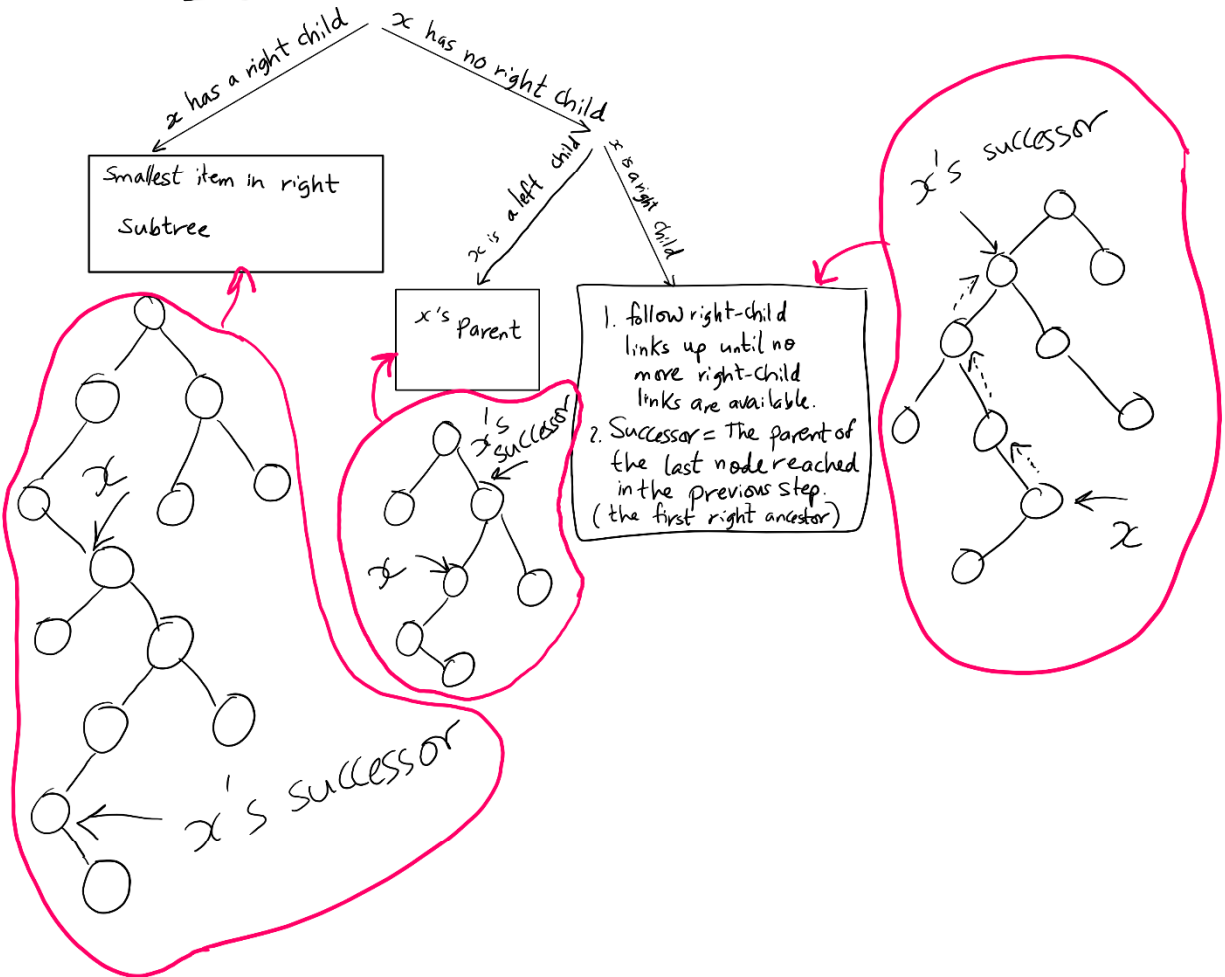 x has a right child
x has no right child
Smallest item in right
Subtree
x is a left child
x is a right child
x's Parent
1. follow right-child
links up until no
more right-child
links are available.
2. Successor = The parent of
the last node reached
in the previous step.
(the first right ancestor)
x
x's successor
x's
successor
x
x's successor
x